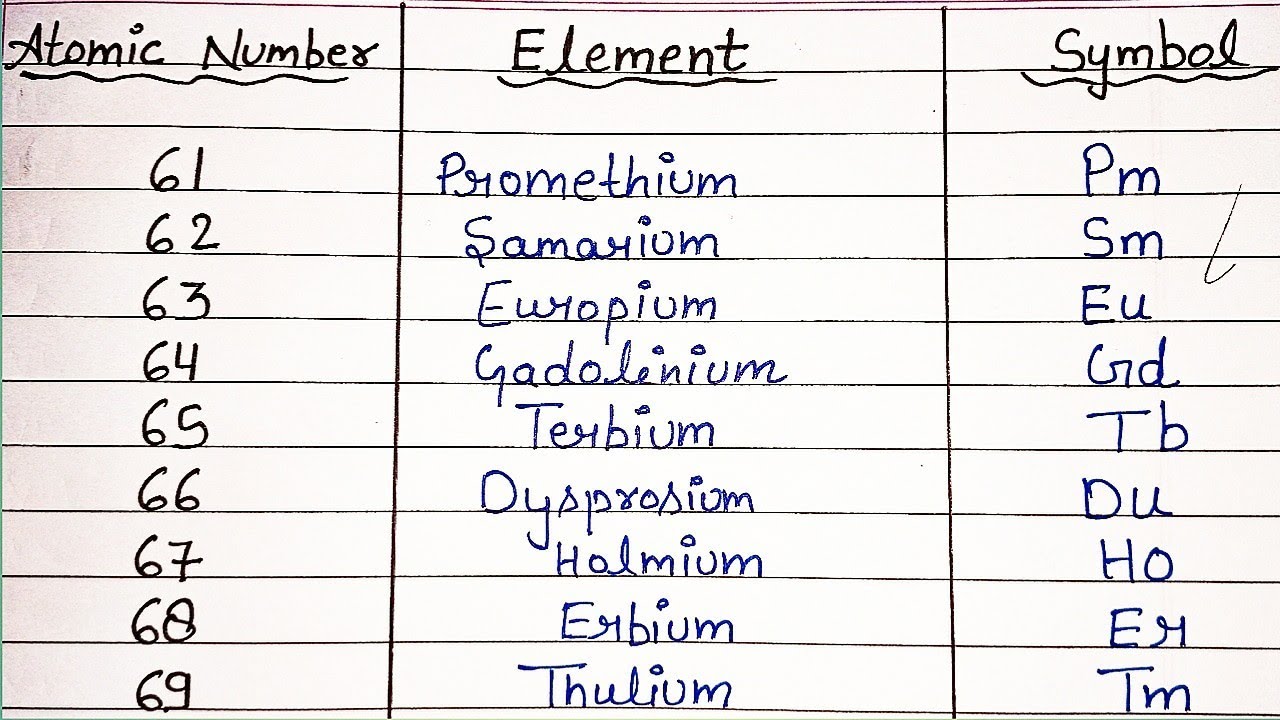 Atomic Number Element Symbol
61 Promethium Pm
62 Samarium Sm
63 Europium Eu
64 Gadolinium Gd
65 Terbium Tb
66 Dysprosium Du
67 Holmium Ho
68 Erbium Er
69 Thulium Tm